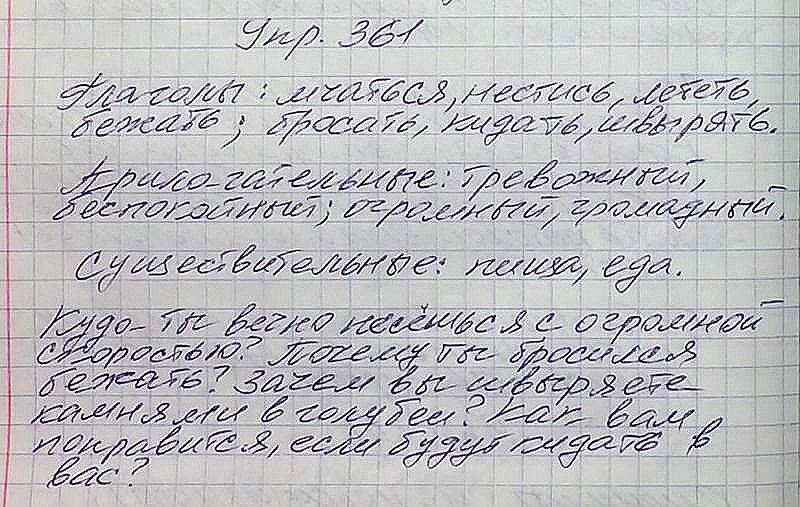 Упр. 361
Глаголы: мчаться, нестись, лететь,
бежать; бросать, кидать, швырять.
Прилагательные: тревожный,
беспокойный; огромный, громадный.
Существительные: пища, еда.
Куда ты вечно несёшься с огромной
скоростью? Почему ты бросился
бежать? Зачем вы швыряете
камнями в голубей? Как вам
понравится, если будут кидать в
вас?